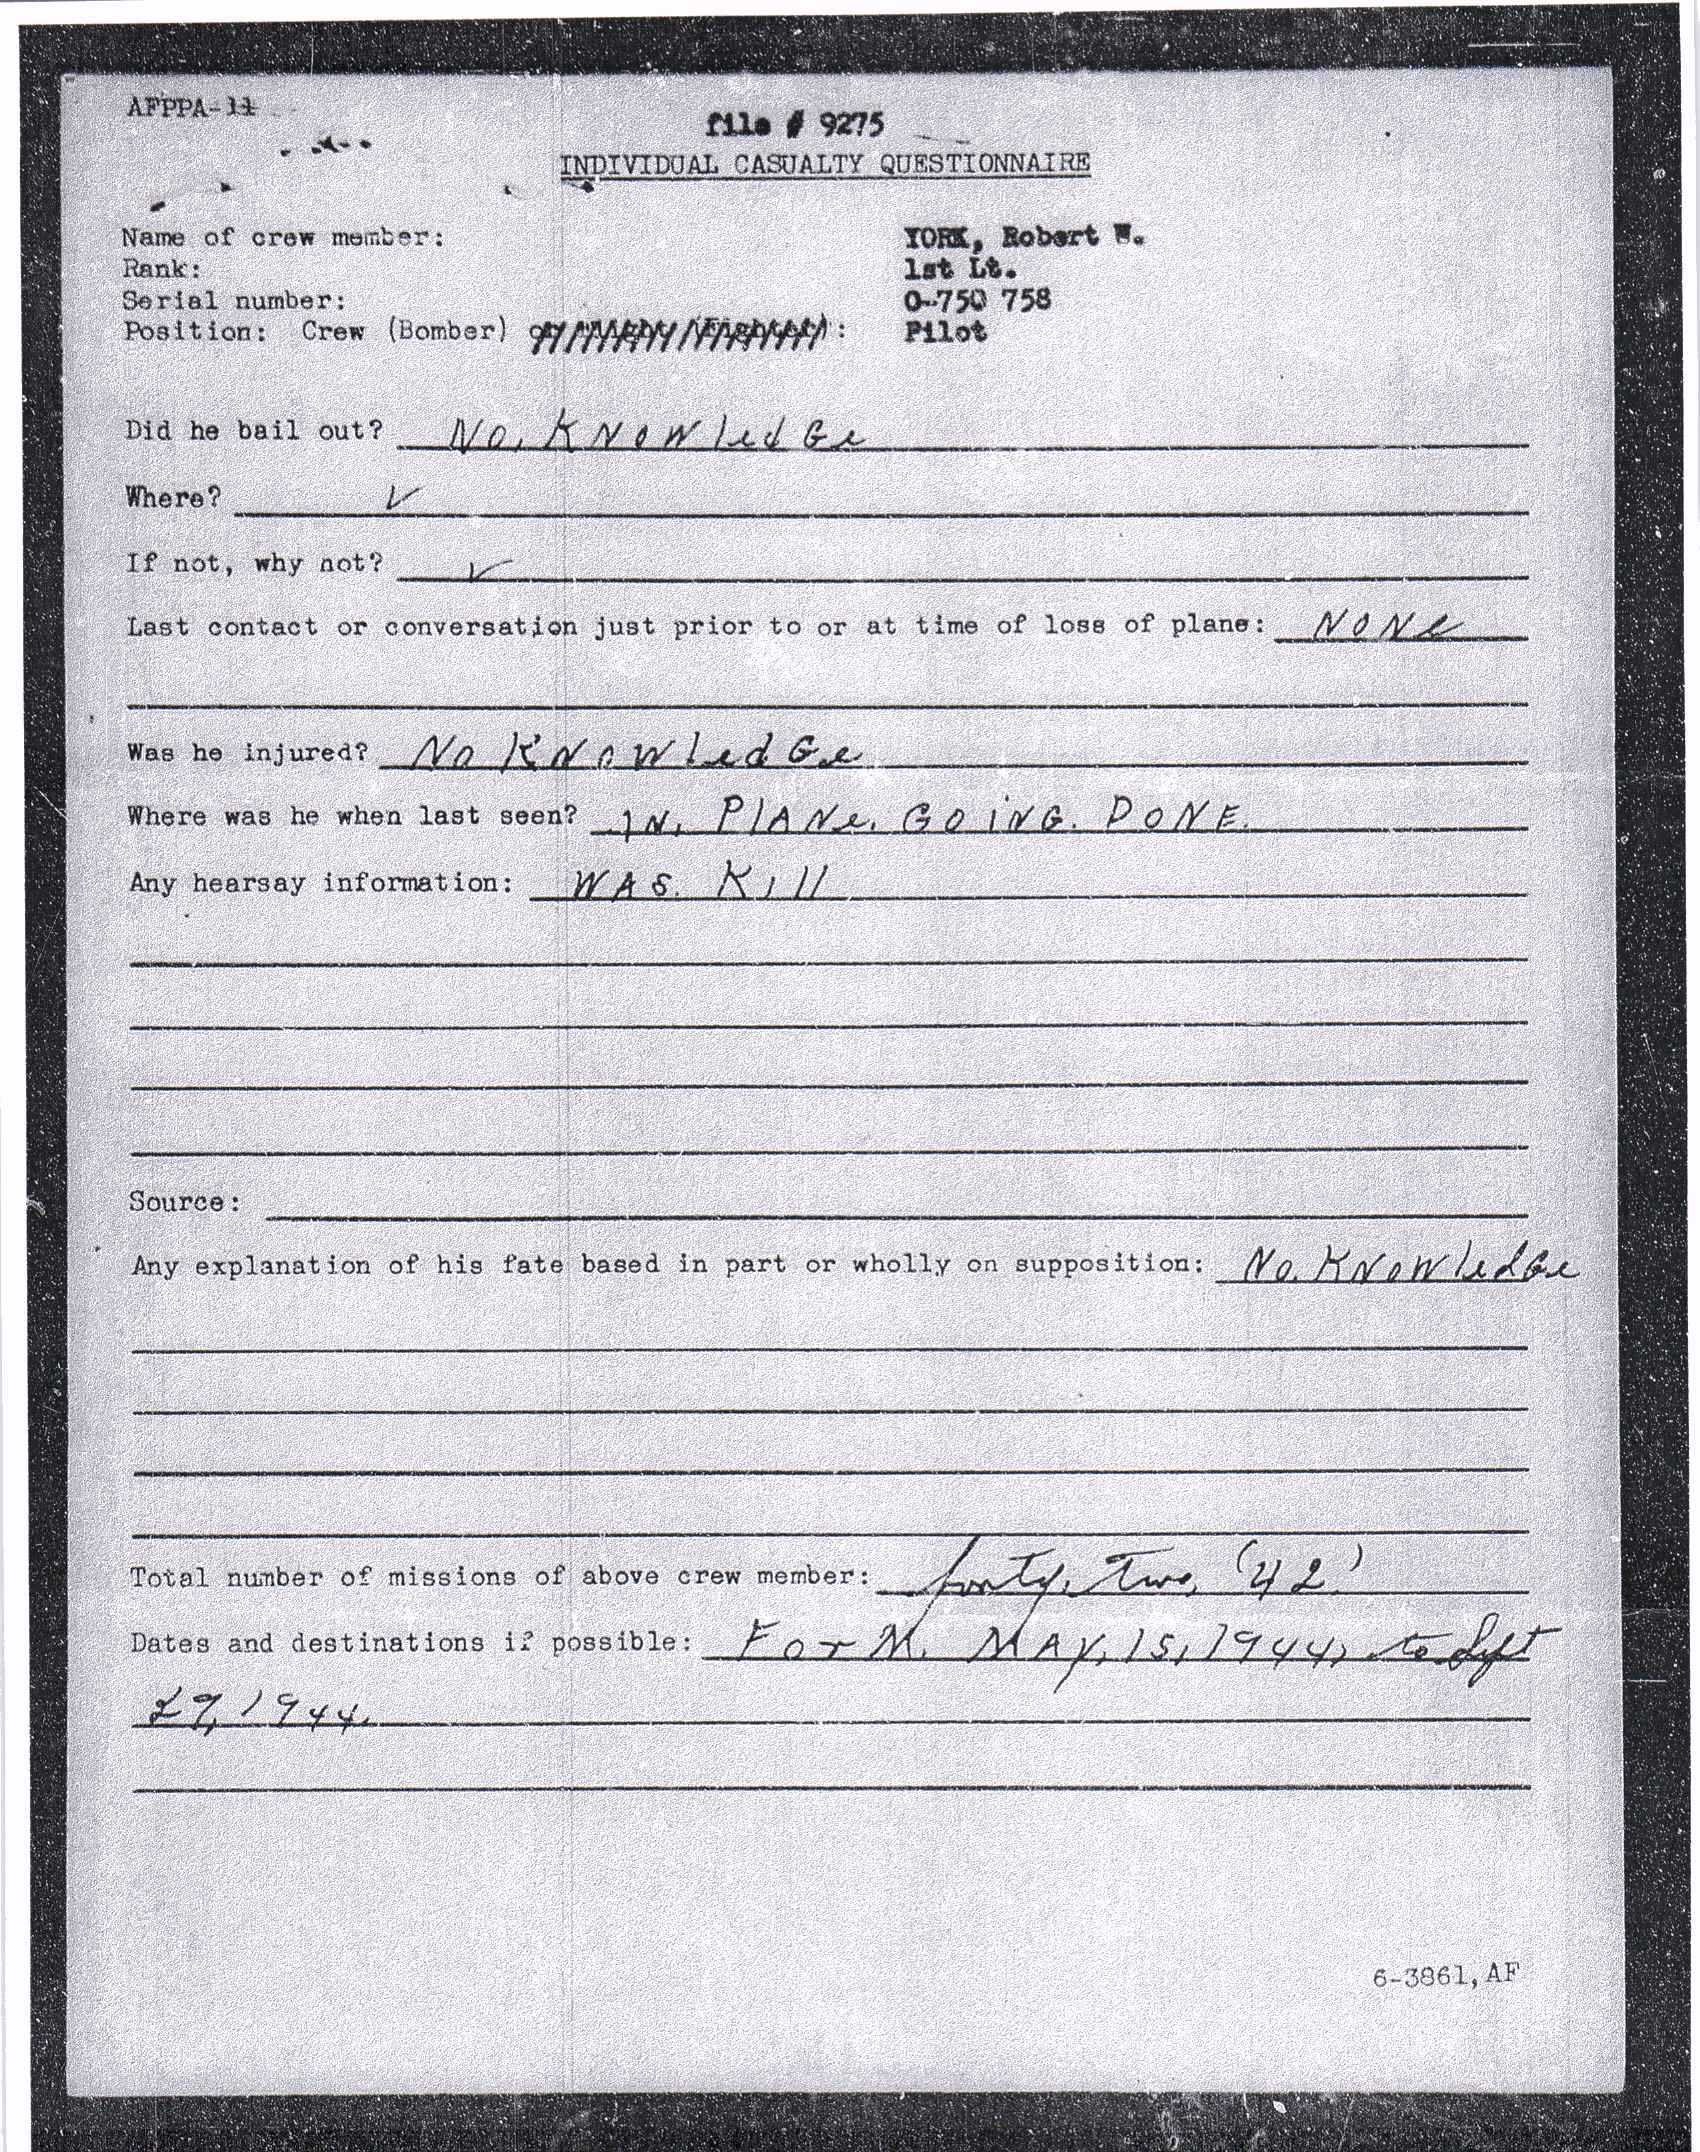 AFPPA-11
file # 9275
INDIVIDUAL CASUALTY QUESTIONNAIRE
Name of crew member: YORK, Robert W.
Rank: 1st Lt.
Serial number: 0-750 758
Position: Crew (Bomber) : Pilot
Did he bail out? No. KNOWledGe
Where? ✓
If not, why not? ✓
Last contact or conversation just prior to or at time of loss of plane: NONe
Was he injured? No KNOWledGe
Where was he when last seen? IN. PlANe. GOiNG. DONE.
Any hearsay information: WAS. Kill
Source:
Any explanation of his fate based in part or wholly on supposition: No. KNOWledGe
Total number of missions of above crew member: forty, Two, (42)
Dates and destinations if possible: ForM. MAY, 15, 1944, to Sept
27, 1944.
6-3861, AF